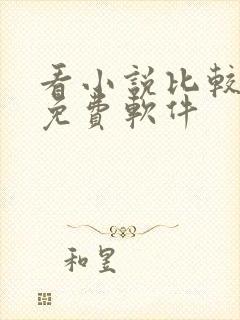 看小說比較
免費軟件
和昱